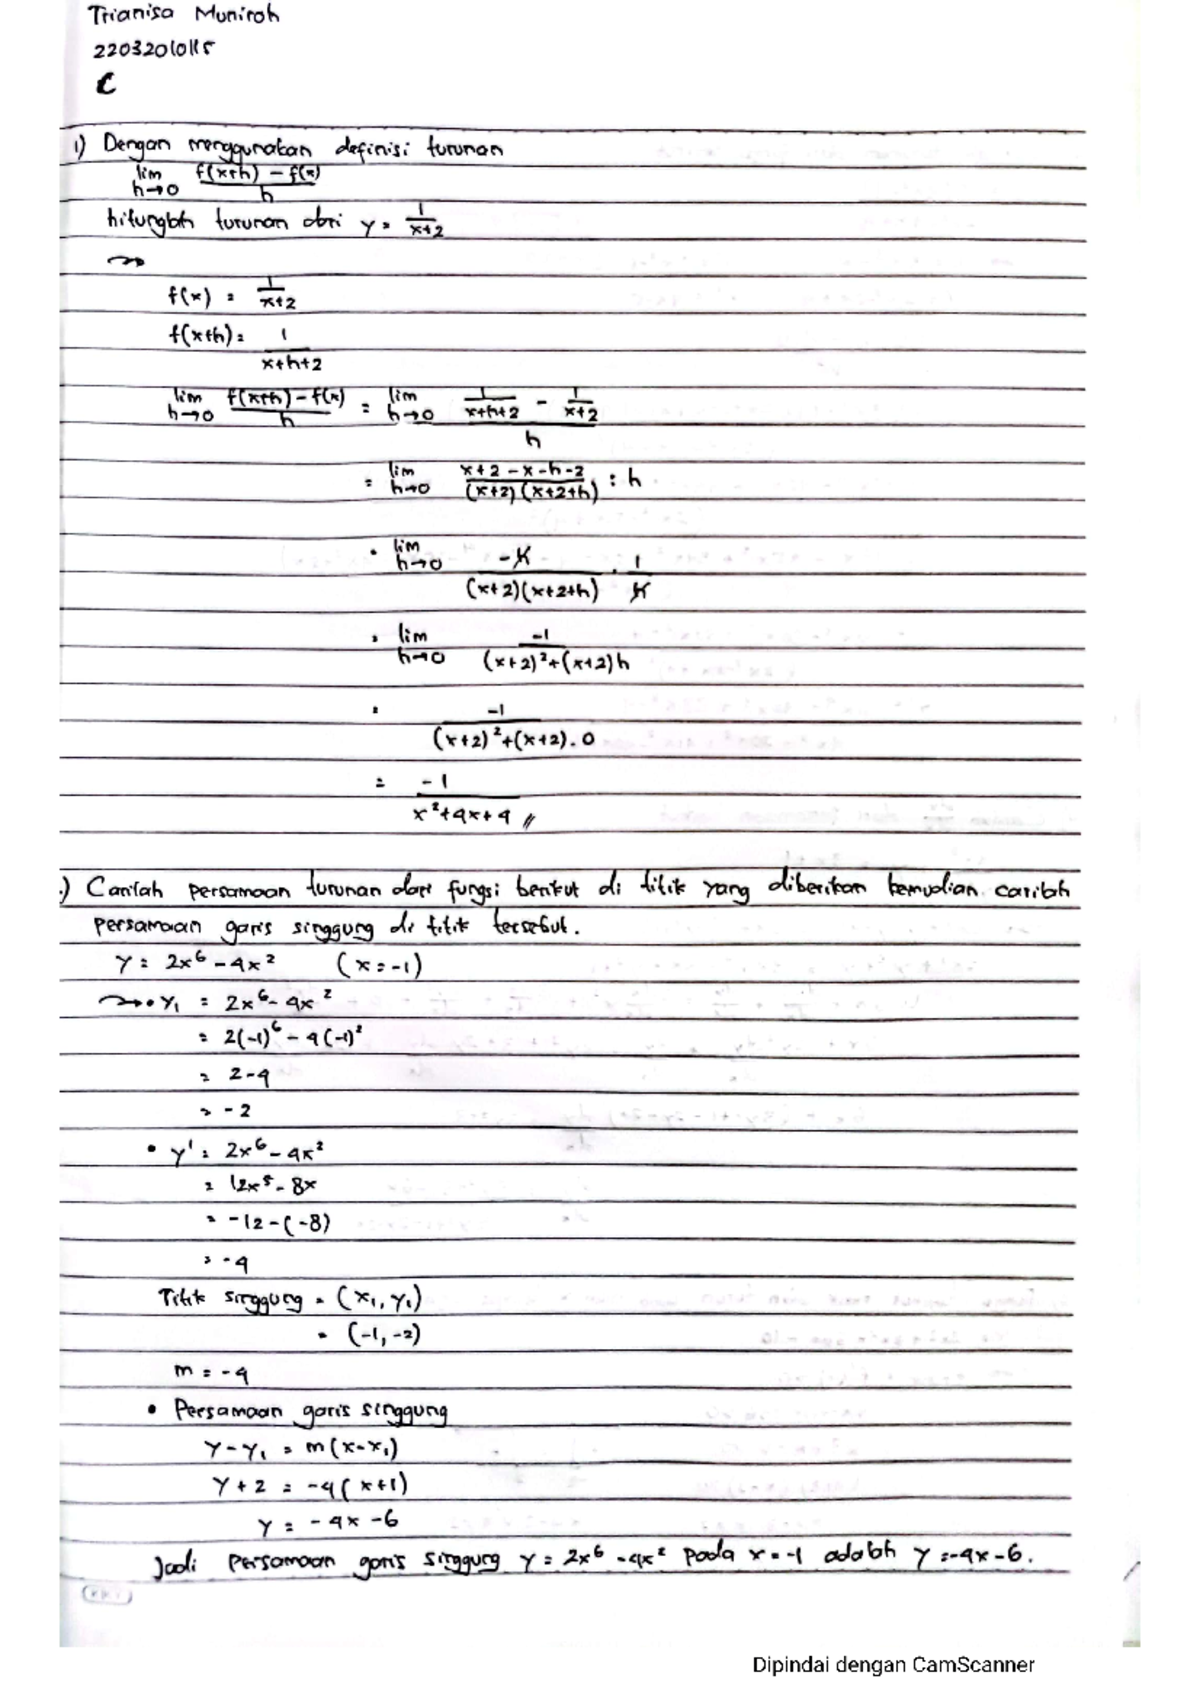 Trianisa Muniroh
22032010115
C
1) Dengan menggunakan definisi turunan
lim h→0 f(x+h) - f(x) / h
hitunglah turunan dari y = 1/(x+2)
f(x) = 1/(x+2)
f(x+h) = 1/(x+h+2)
lim h→0 (f(x+h) - f(x))/h = lim h→0 (1/(x+h+2) - 1/(x+2))/h
= lim h→0 (x+2-x-h-2)/((x+2)(x+2+h)) : h
= lim h→0 -h/((x+2)(x+2+h)) . 1/h
= lim h→0 -1/((x+2)²+(x+2)h)
= -1/((x+2)²+(x+2).0)
= -1/(x²+4x+4) //
.) Carilah persamaan turunan dari fungsi berikut di titik yang diberikan kemudian carilah
persamaan garis singgung di titik tersebut.
y = 2x⁶ - 4x² (x = -1)
• y₁ = 2x⁶ - 4x²
= 2(-1)⁶ - 4(-1)²
= 2-4
= -2
• y' = 2x⁶ - 4x²
= 12x⁵ - 8x
= -12-(-8)
= -4
Titik singgung = (x₁, y₁)
= (-1, -2)
m = -4
• Persamaan garis singgung
y - y₁ = m(x-x₁)
y + 2 = -4(x+1)
y = -4x - 6
Jadi persamaan garis singgung y = 2x⁶ - 4x² pada x = -1 adalah y = -4x - 6.
Dipindai dengan CamScanner